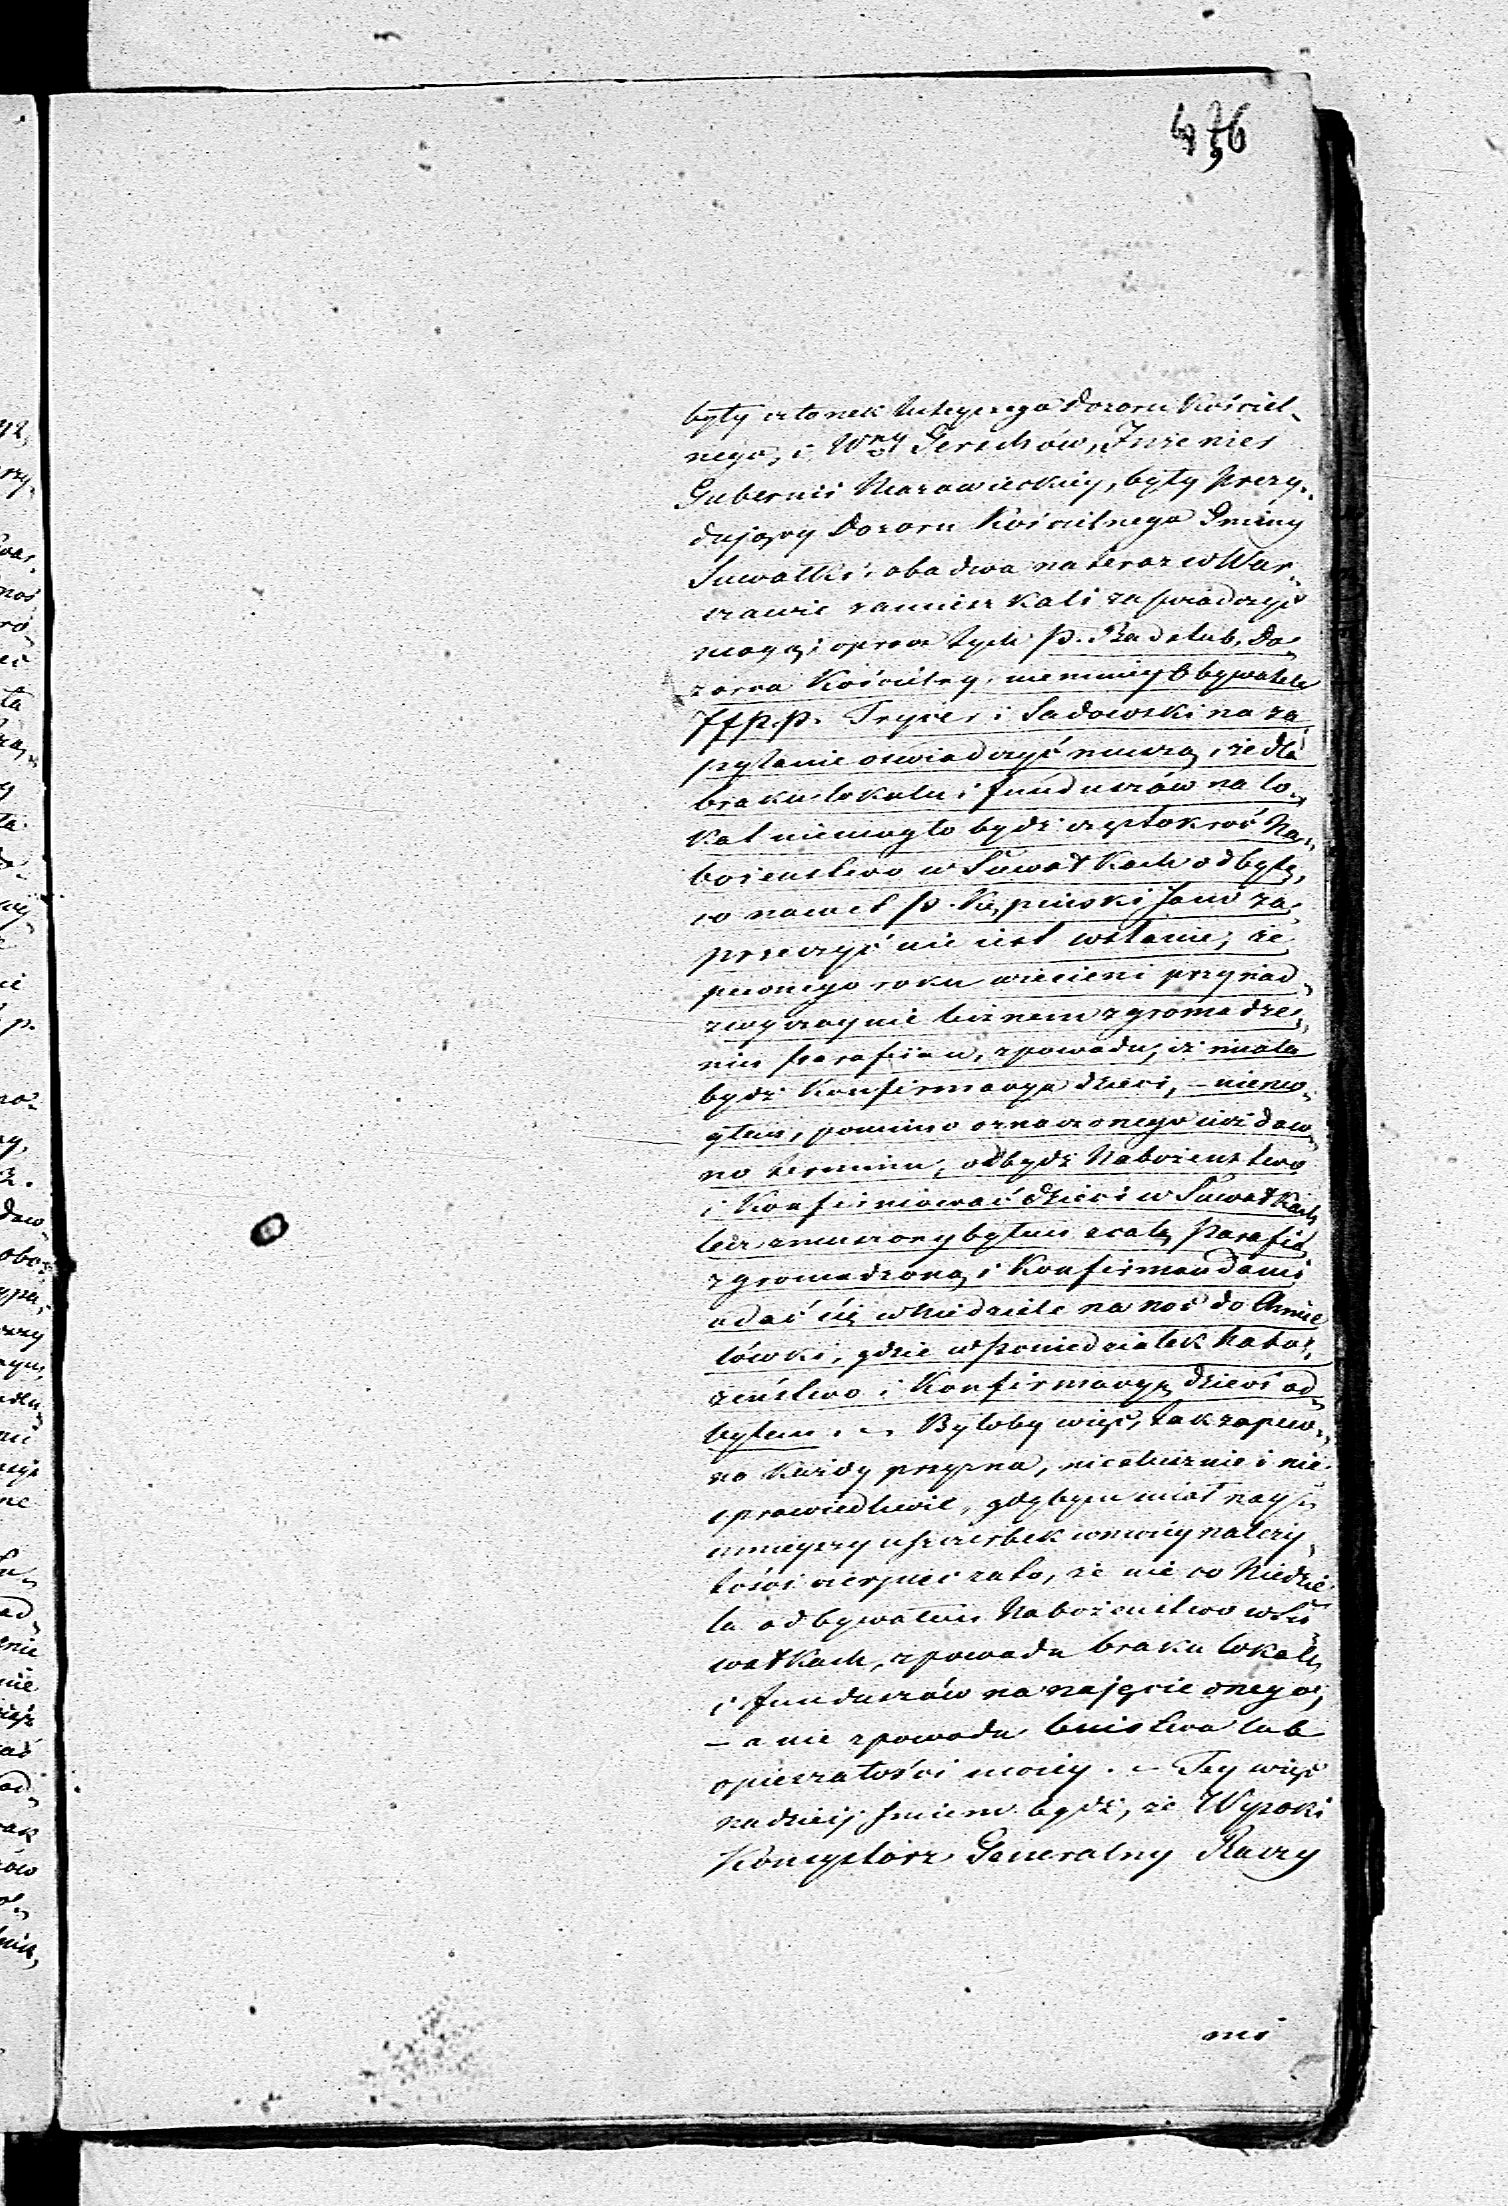 były członek tuteyszego Dozoru Kościel-
nego, i Wny Gerschów, Inżenier
Gubernii Mazowieckiey, były Prezy-
dujący Dozoru Kościelnego Gminy
Suwałki, obadwa na teraz w War-
szawie zamieszkali zaświadczyć
mogą; oprócz tych P. Radelub, Do-
zorca Kościelny, niemniey Obywatele
PP. i Sadowski na za-
pytanie oświadczyć muszą, że dla
braku lokalu i funduszów na lo-
kal niemogło bydź częstokroć Na-
bożeństwo w Suwałkach odbyte,
co nawet P. Kępiński sam za-
przeczyć nie iest wstanie; że
pewnego roku w iesieni przy nad-
zwyczaynie licznem zgromadze-
niu Parafiian, z powodu, iż miała
bydź Konfirmacya dzieci, – niemo-
głem, pomimo oznaczonego iuż daw-
no terminu, odbydź Nabożeństwo
i Konfirmować dzieci w Suwałkach
lecz zmuszony byłem z całą Parafią
zgromadzoną i Konfirmandami
udać się w Niedziele na noc do Chmie-
lówki, gdzie w Poniedziałek Nabo-
żeństwo i Konfirmacyę dzieci od-
byłem. – Byłoby więc, iak zapew-
no każdy przyzna, niesłusznie i nie-
sprawiedliwie, gdybym miał nay-
mnieyszy uszczerbek w moiey należy-
tości cierpieć za to, że nie co Niedzie-
la odbywałem Nabożeństwo w Su-
wałkach, z powodu braku lokalu
i funduszów na najęcie onego,
– a nie z powodu lenistwa lub
opieszałości moiey. – Tey więc
nadzieij śmiem bydź, że Wysoki
Konsystorz Generalny Raczy
mi